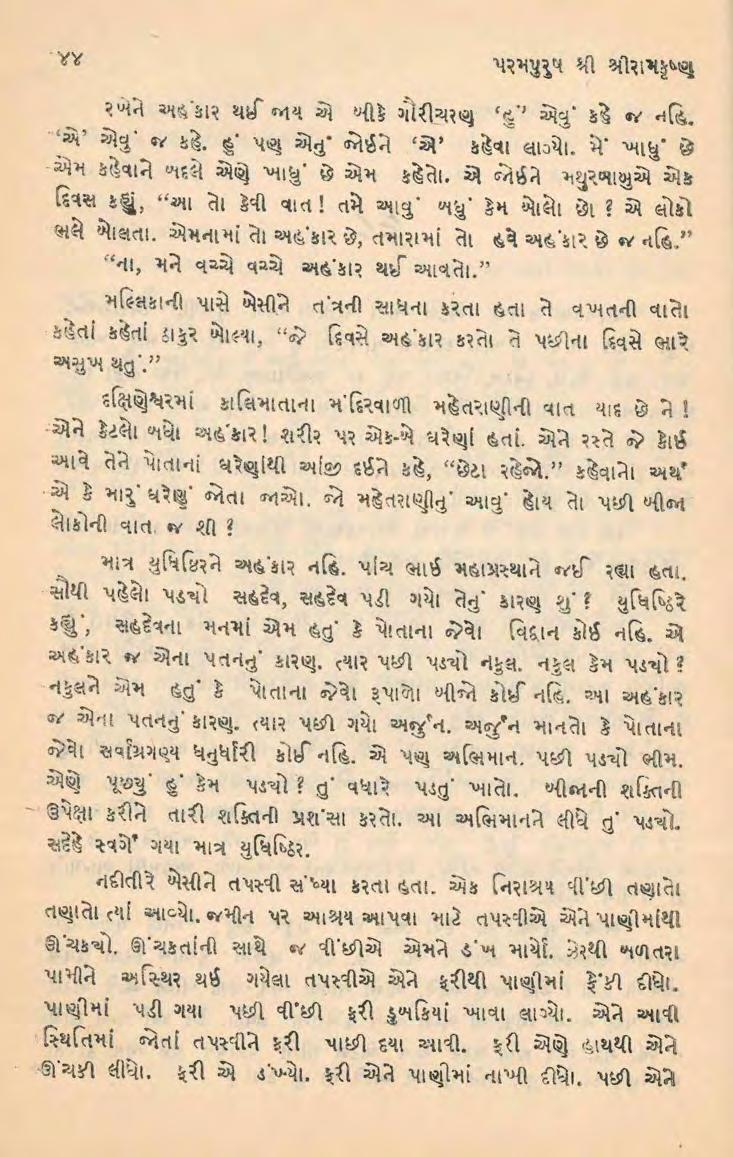 ૪૪
પરમપુરુષ શ્રી શ્રીરામકૃષ્ણ
રખેને અહંકાર થઈ જાય એ બીકે ગૌરીચરણ ‘હું’ એવું કહે જ નહિ.
‘એ’ એવું જ કહે. હું પણ એનું જોઈને ‘એ’ કહેવા લાગ્યો. મેં ખાધું છે
એમ કહેવાને બદલે એણે ખાધું છે એમ કહેતો. એ જોઈને મથુરબાબુએ એક
દિવસ કહ્યું, “આ તો કેવી વાત! તમે આવું બધું કેમ બોલો છો ? એ લોકો
ભલે બોલતા. એમનામાં તો અહંકાર છે, તમારામાં તો હવે અહંકાર છે જ નહિ.”
“ના, મને વચ્ચે વચ્ચે અહંકાર થઈ આવતો.”
મલ્લિકાની પાસે બેસીને તંત્રની સાધના કરતા હતા તે વખતની વાતો
કહેતાં કહેતાં ઠાકુર બોલ્યા, “જે દિવસે અહંકાર કરતો તે પછીના દિવસે ભારે
અસુખ થતું.”
દક્ષિણેશ્વરમાં કાલિમાતાના મંદિરવાળી મહેતરાણીની વાત યાદ છે ને !
એને કેટલો બધો અહંકાર! શરીર પર એક-બે ઘરેણાં હતાં. એને રસ્તે જે કોઈ
આવે તેને પોતાનાં ઘરેણાંથી આંજી દઈને કહે, “છેટા રહેજો.” કહેવાનો અર્થ
એ કે મારું ઘરેણું જોતા જાઓ. જો મહેતરાણીનું આવું હોય તો પછી બીજા
લોકોની વાત જ શી ?
માત્ર યુધિષ્ઠિરને અહંકાર નહિ. પાંચ ભાઈ મહાપ્રસ્થાને જઈ રહ્યા હતા.
સૌથી પહેલો પડયો સહદેવ, સહદેવ પડી ગયો તેનું કારણ શું ? યુધિષ્ઠિરે
કહ્યું, સહદેવના મનમાં એમ હતું કે પોતાના જેવો વિદ્વાન કોઈ નહિ. એ
અહંકાર જ એના પતનનું કારણ. ત્યાર પછી પડયો નકુલ. નકુલ કેમ પડયો ?
નકુલને એમ હતું કે પોતાના જેવો રૂપાળો બીજો કોઈ નહિ. આ અહંકાર
જ એના પતનનું કારણ. ત્યાર પછી ગયો અર્જુન. અર્જુન માનતો કે પોતાના
જેવો સર્વાગ્રગણ્ય ધનુર્ધારી કોઈ નહિ. એ પણ અભિમાન. પછી પડયો ભીમ.
એણે પૂછયું હું કેમ પડયો ? તું વધારે પડતું ખાતો. બીજાની શક્તિની
ઉપેક્ષા કરીને તારી શક્તિની પ્રશંસા કરતો. આ અભિમાનને લીધે તું પડયો.
સદેહે સ્વર્ગે ગયા માત્ર યુધિષ્ઠિર.
નદીતીરે બેસીને તપસ્વી સંધ્યા કરતા હતા. એક નિરાશ્રય વીંછી તણાતો
તણાતો ત્યાં આવ્યો. જમીન પર આશ્રય આપવા માટે તપસ્વીએ એને પાણીમાંથી
ઊંચકયો. ઊંચકતાંની સાથે જ વીંછીએ એમને ડંખ માર્યો. ઝેરથી બળતરા
પામીને અસ્થિર થઈ ગયેલા તપસ્વીએ એને ફરીથી પાણીમાં ફેંકી દીધો.
પાણીમાં પડી ગયા પછી વીંછી ફરી ડુબકિયાં ખાવા લાગ્યો. એને આવી
સ્થિતિમાં જોતાં તપસ્વીને ફરી પાછી દયા આવી. ફરી એણે હાથથી એને
ઊંચકી લીધો. ફરી એ ડંખ્યો. ફરી એને પાણીમાં નાખી દીધો. પછી એને